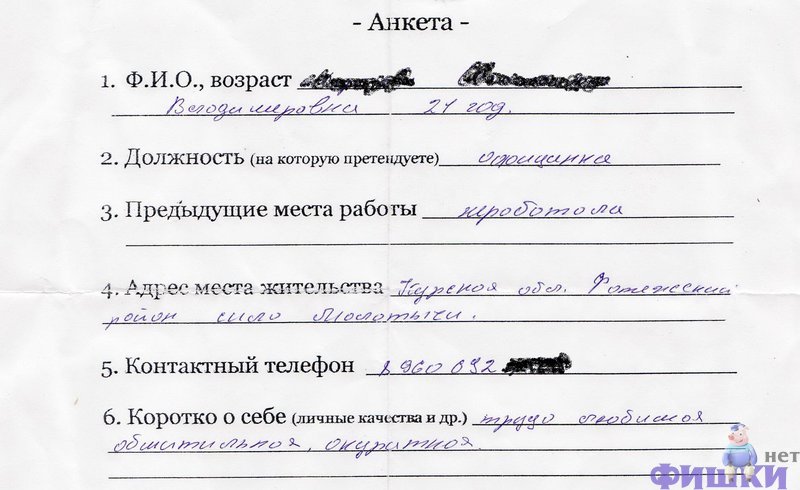 - Анкета -
1. Ф.И.О., возраст
Володимеровна 21 год.
2. Должность (на которую претендуете) официанка
3. Предыдущие места работы неработала
4. Адрес места жительства Курская обл. Фатежский
район сило Молотычи.
5. Контактный телефон 8 960 692
6. Коротко о себе (личные качества и др.) трудо любимая
обшитильная, окуратная.
нет
ФИШКИ